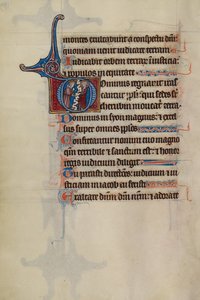 montes exultabunt a conspectu dni:
quoniam uenit iudicare terram
Iudicabit orbem terrar in iusticia:
et populos in equitate
Dominus regnauit iras
cantur ppli: qui sedet
cherubin moueatur terra
Dominus in syon magnus: et excel
sus super omnes pplos
Confiteantur nomini tuo magno
qm terribile et sanctum est: et honor
regis iudicium diligit
Tu parasti directiones: iudicium et iu
sticiam in iacob tu fecisti
Exaltate dnm dnm nrm: et adorate